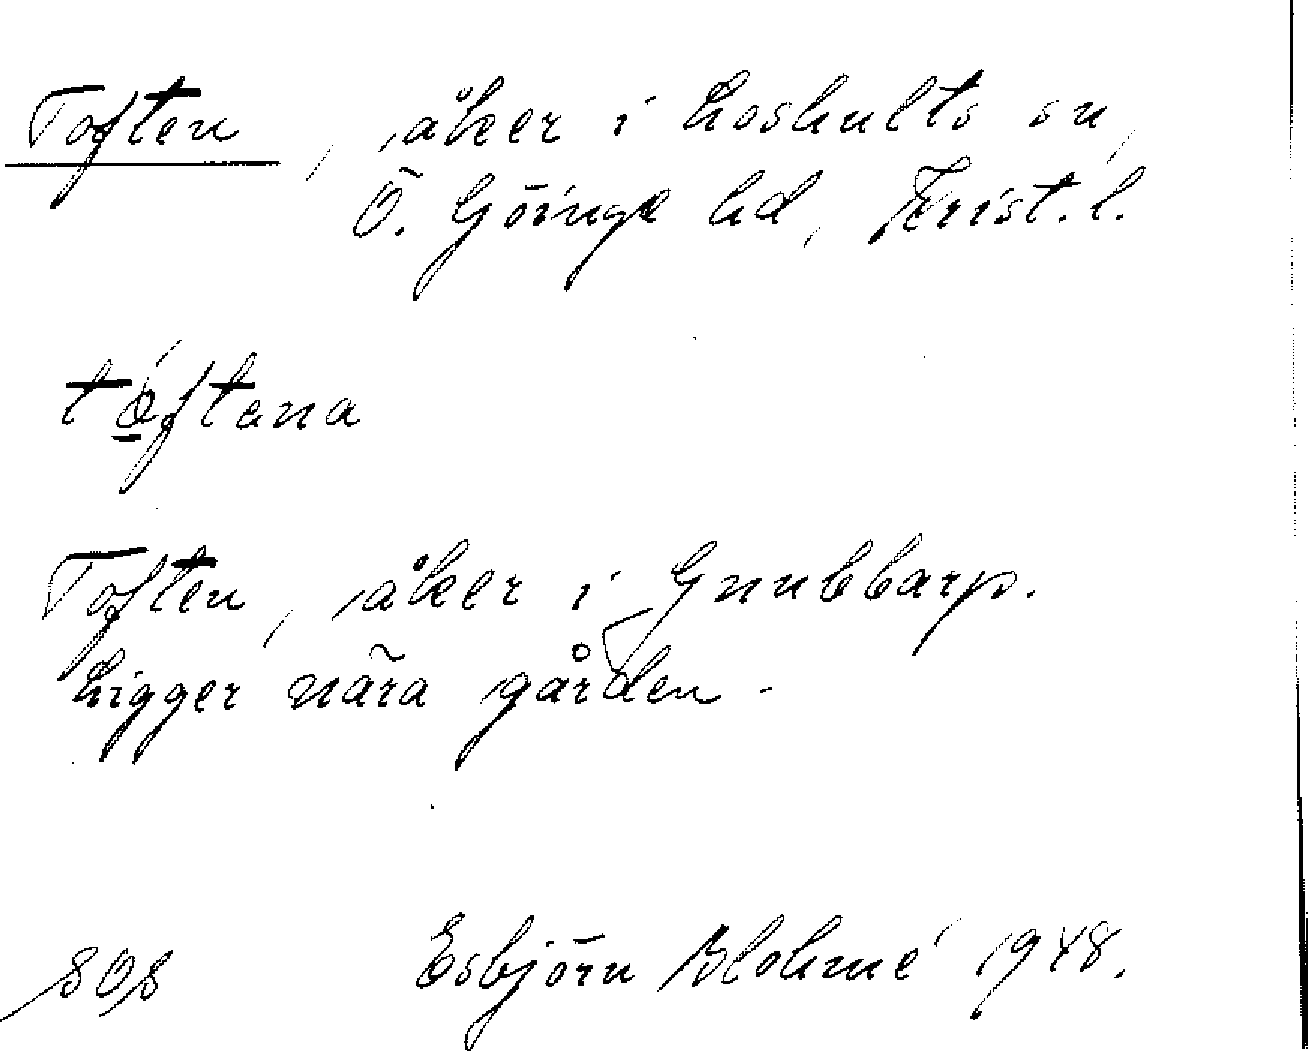 Toften, åker i Loshults sn,
Ö. Göinge hd, Krist. l.
tóftana
Toften, åker i Gnubbarp.
Ligger nära gården.
808 Esbjörn Blohmé 1948.